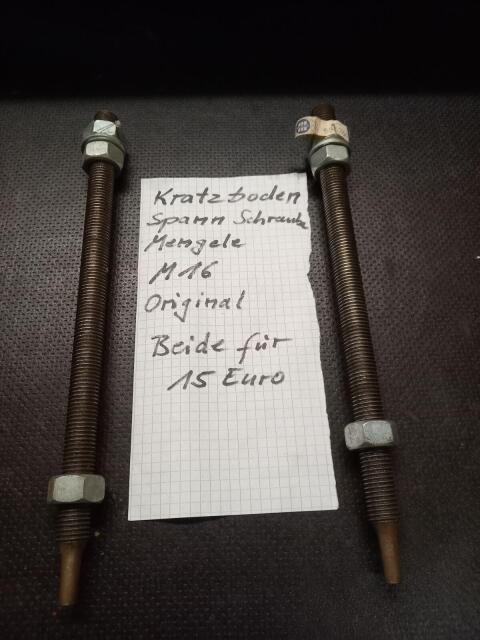 Kratzboden
Spann Schraube
Mengele
M 16
Original
Beide für
15 Euro